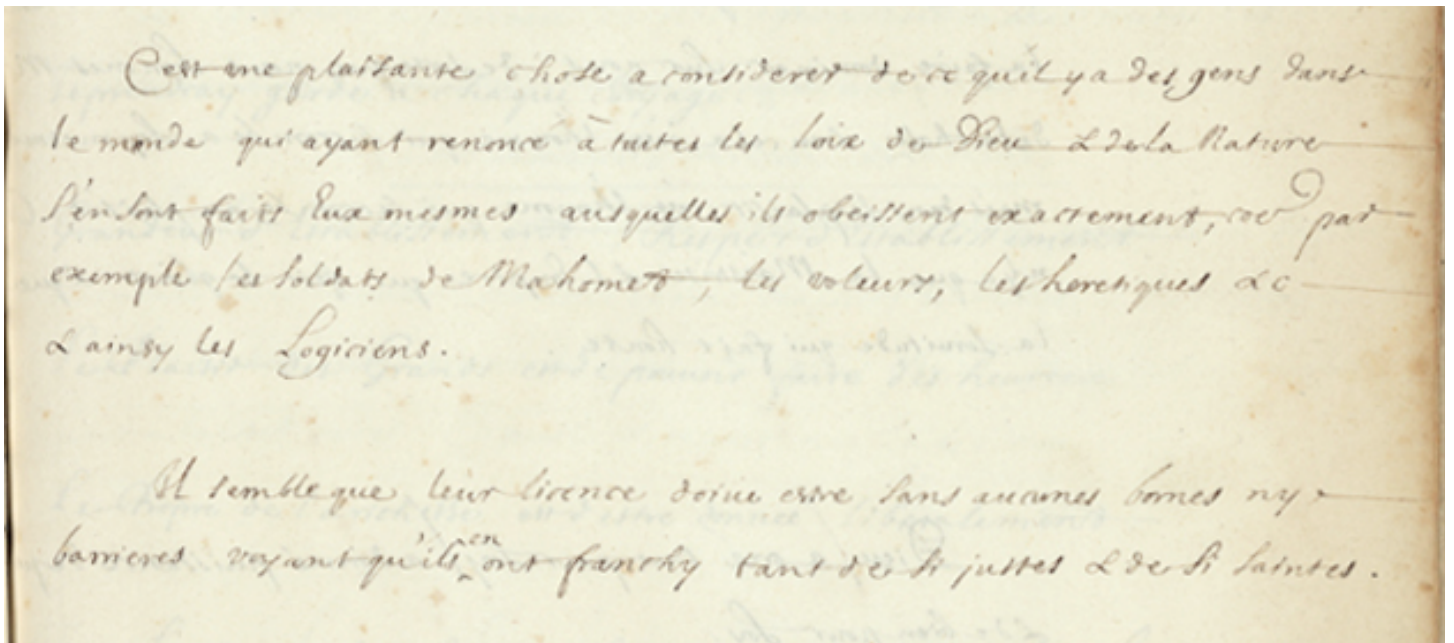 C'est une plaisante chose a considerer de ce qu'il y a des gens dans
le monde qui ayant renoncé à toutes les loix de Dieu & de la Nature
s'en sont faits Eux mesmes ausquelles ils obeissent exactement, coe par
exemple les soldats de Mahomet, les voleurs, les heretiques &c
& ainsy les Logiciens.
Il semble que leur licence doiue estre sans aucunes bornes ny
barrieres voyant qu'ils en ont franchy tant de si justes & de si saintes.